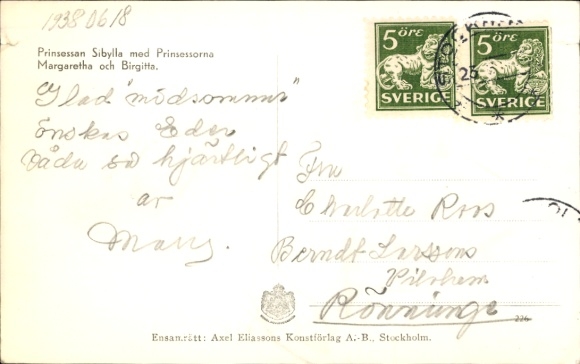 1938 06 18
Prinsessan Sibylla med Prinsessorna
Margaretha och Birgitta.
Glad "midsommar"
önskas Eder
båda så hjärtligt
av
5 ÖRE
SVERIGE
5 ÖRE
SVERIGE
STOCKHOLM
25
Fru
Charlotte Roos
Berndt Larssons
Rönninge
226
Ensamrätt: Axel Eliassons Konstförlag A.-B., Stockholm.